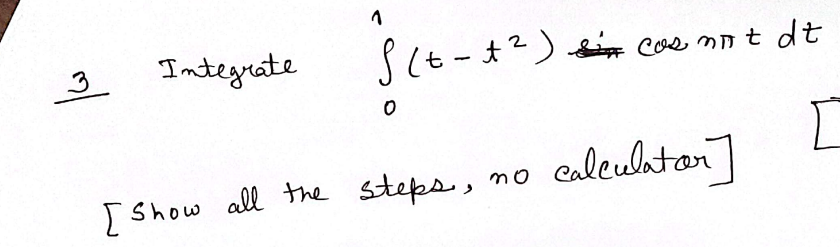 3 Integrate ∫₀¹ (t - t²) cos nπt dt
[Show all the steps, no calculator]